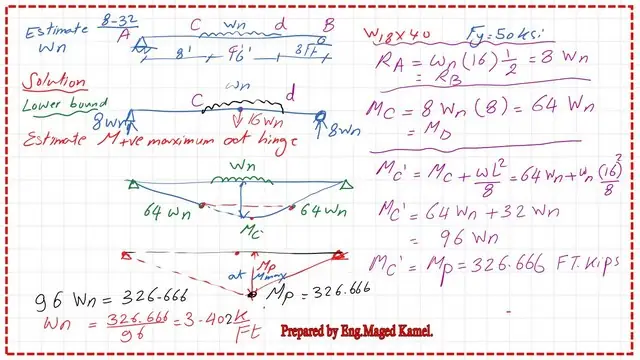 Estimate 8-32
Wn
A
C
Wn
d
B
8'
16'
8ft
Solution
Lower bound
Wn
C
d
8wn
16Wn
8wn
Estimate M+ve maximum at hinge
Wn
64 Wn
64 Wn
Mc'
Mp
at Mmax
96 Wn = 326.666
Mp = 326.666
Wn = 326.666/96 = 3.402 K/Ft
W18x40 Fy=50ksi
RA = wn (16) 1/2 = 8 Wn
= RB
Mc = 8 Wn (8) = 64 Wn
= MD
Mc' = Mc + WL²/8 = 64 Wn + wn (16)²/8
Mc' = 64 Wn + 32 Wn
= 96 Wn
Mc' = Mp = 326.666 FT.Kips
Prepared by Eng.Maged Kamel.